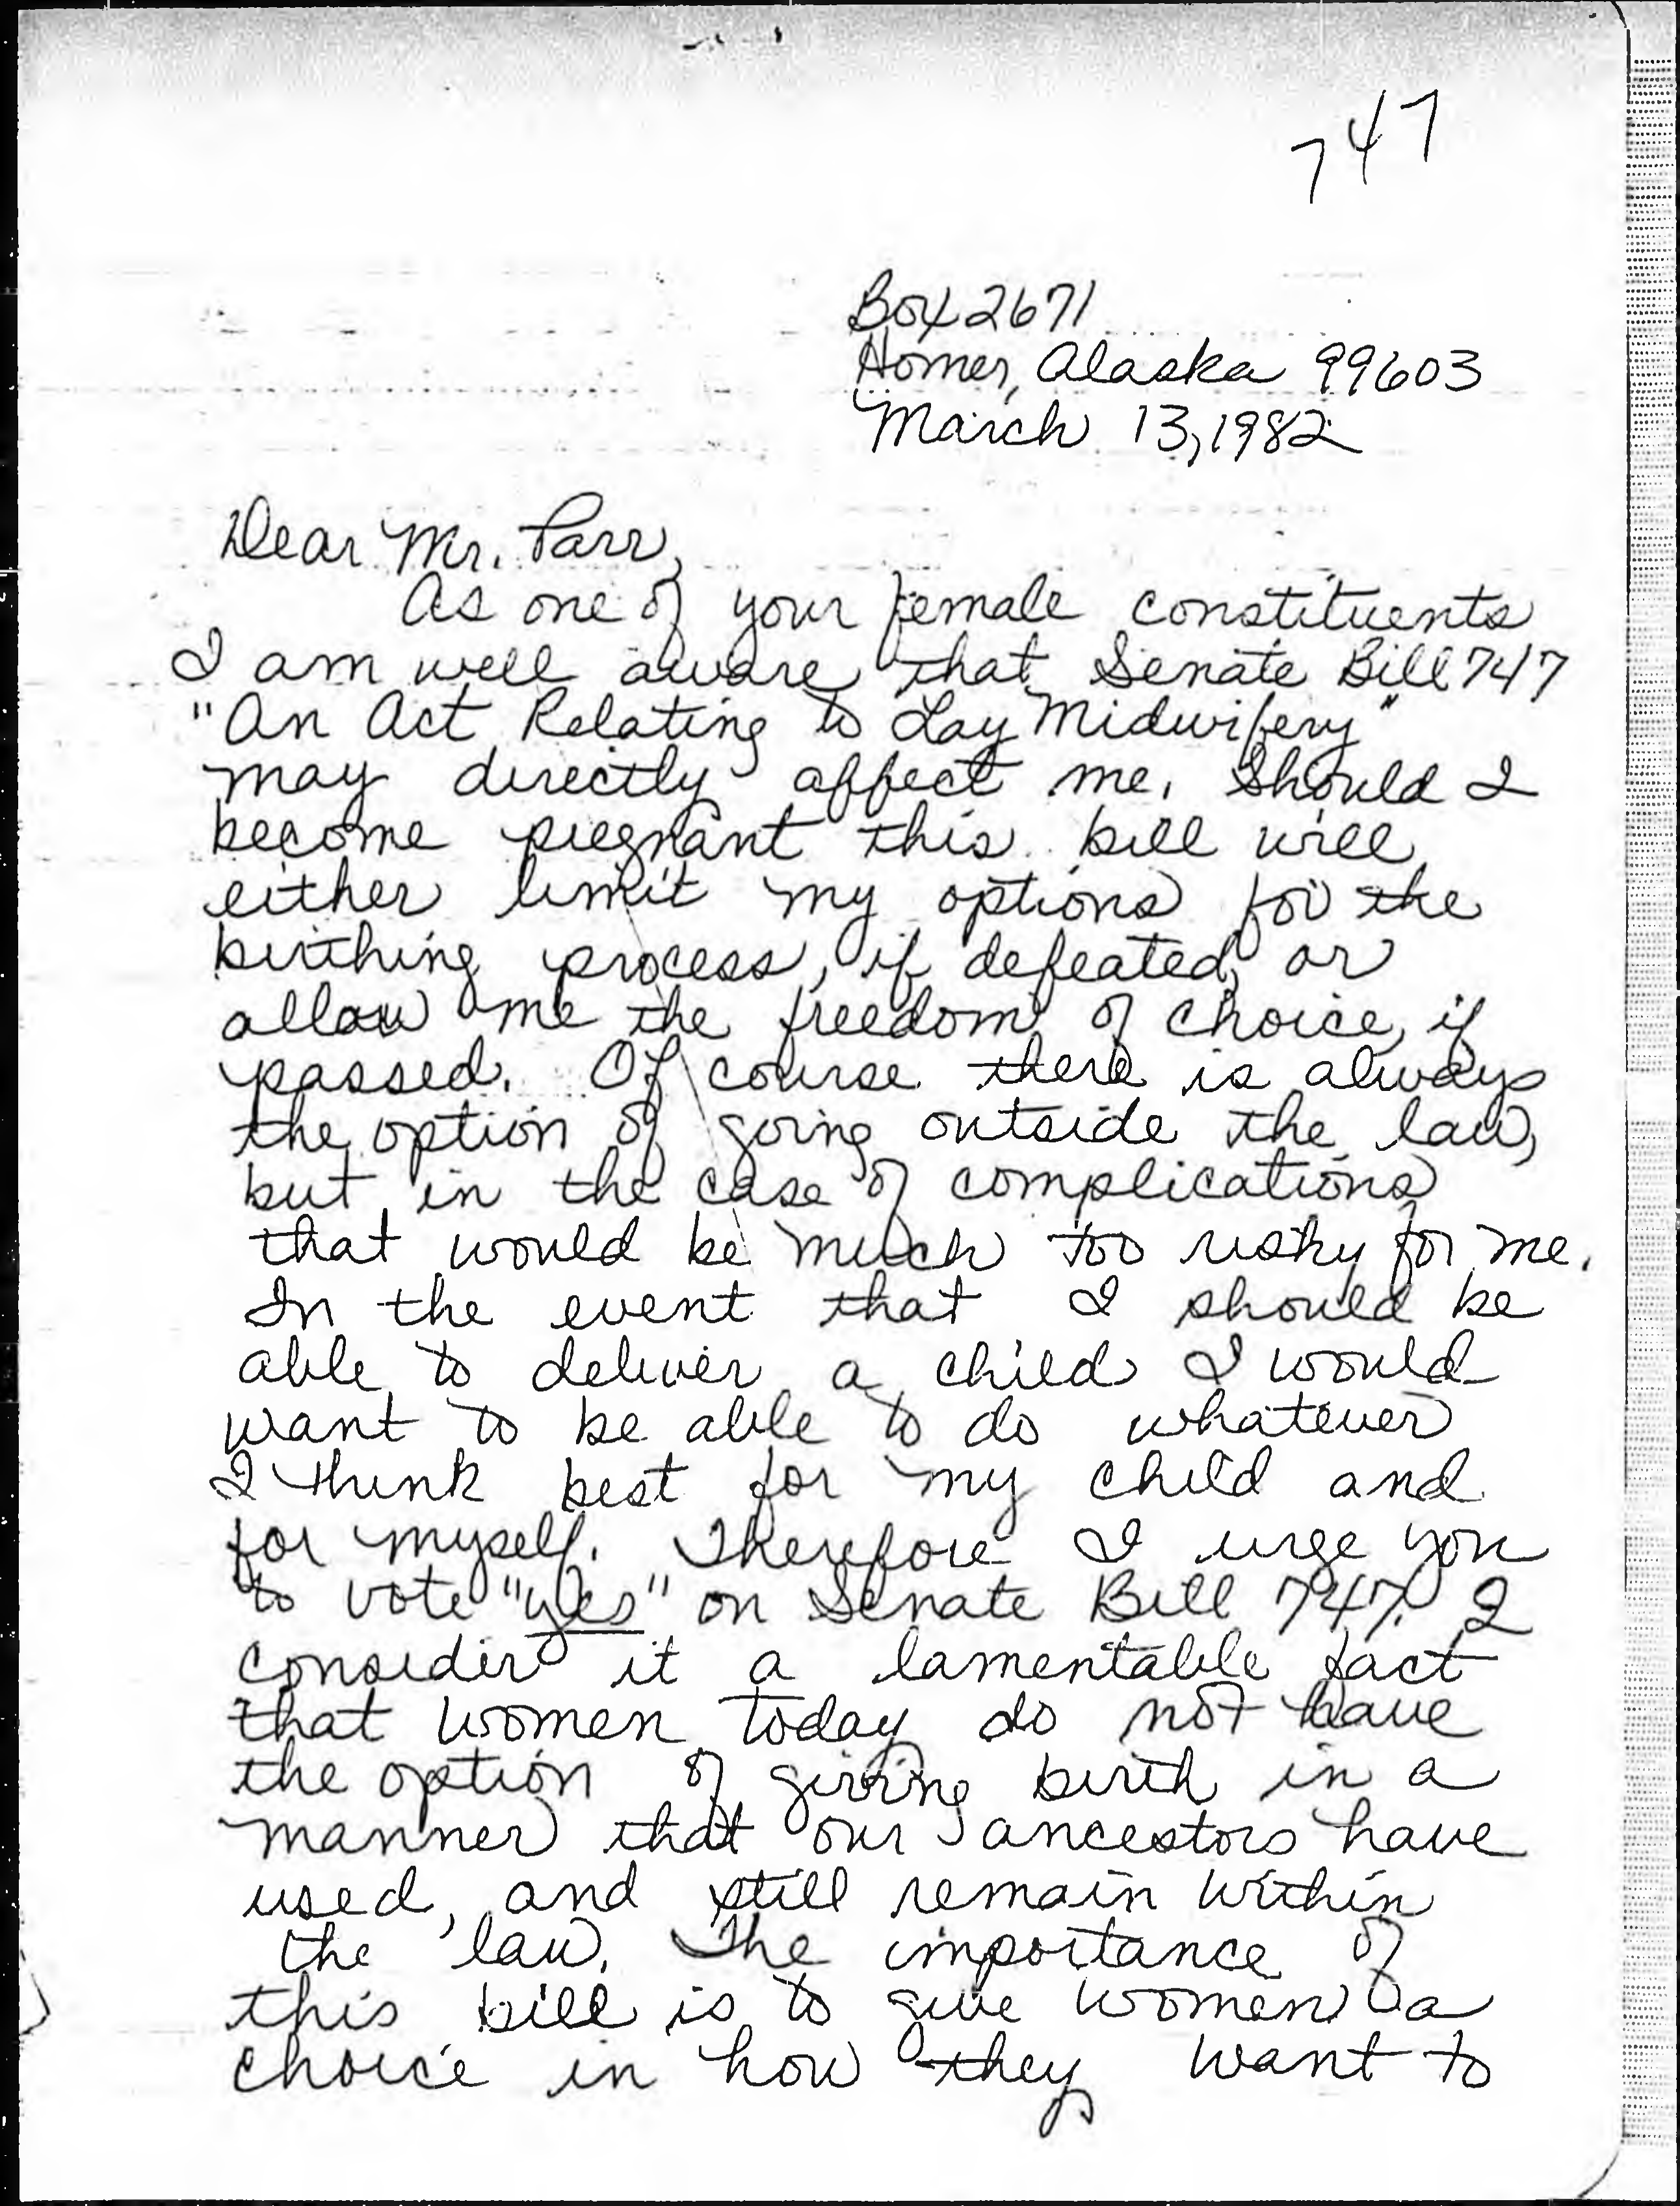 747
Box 2671
Homer, Alaska 99603
March 13, 1982
Dear Mr. Parr,
As one of your female constituents
I am well aware that Senate Bill 747
"An Act Relating to Lay Midwifery"
may directly affect me. Should I
become pregnant this bill will
either limit my options for the
birthing process, if defeated, or
allow me the freedom of choice, if
passed. Of course there is always
the option of going outside the law,
but in the case of complications
that would be much too risky for me.
In the event that I should be
able to deliver a child I would
want to be able to do whatever
I think best for my child and
for myself. Therefore I urge you
to vote "yes" on Senate Bill 747. I
consider it a lamentable fact
that women today do not have
the option of giving birth in a
manner that our ancestors have
used, and still remain within
the law. The importance of
this bill is to give women a
choice in how they want to